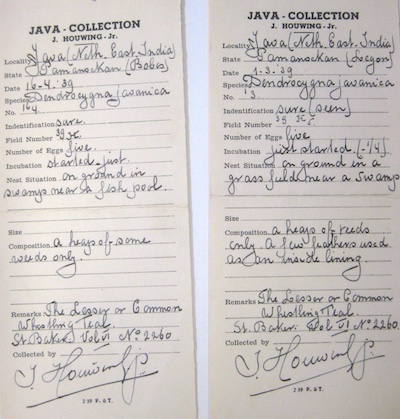 JAVA - COLLECTION
J. HOUWING - Jr.
Locality Java (Neth. East. India)
State Pamanoekan (Bobos)
Date 16-4.'39
Species Dendrocygna javanica
No.
Indentification sure.
Field Number
Number of Eggs five.
Incubation started just.
Nest Situation on ground in
swamps near a fish pool.
Size
Composition a heap of some
weeds only.
Remarks The Lesser or Common
Whistling Teal.
St. Baker. Vol. VI No. 2260
Collected by
J. Houwing Jr.
2 39 P. & T.
JAVA - COLLECTION
J. HOUWING - Jr.
Locality Java (Neth. East. India)
State Pamanoekan (Legon)
Date 1-3.'39
Species Dendrocygna javanica
No.
Indentification sure (seen)
Field Number
Number of Eggs five
Incubation just started. (-1/4)
Nest Situation on ground in a
grass field near a swamp
Size
Composition a heap of reeds
only. a few feathers used
as an inside lining.
Remarks The Lesser or Common
Whistling Teal.
St. Baker. Vol. VI No. 2260.
Collected by
J. Houwing Jr.
2 39 P. & T.